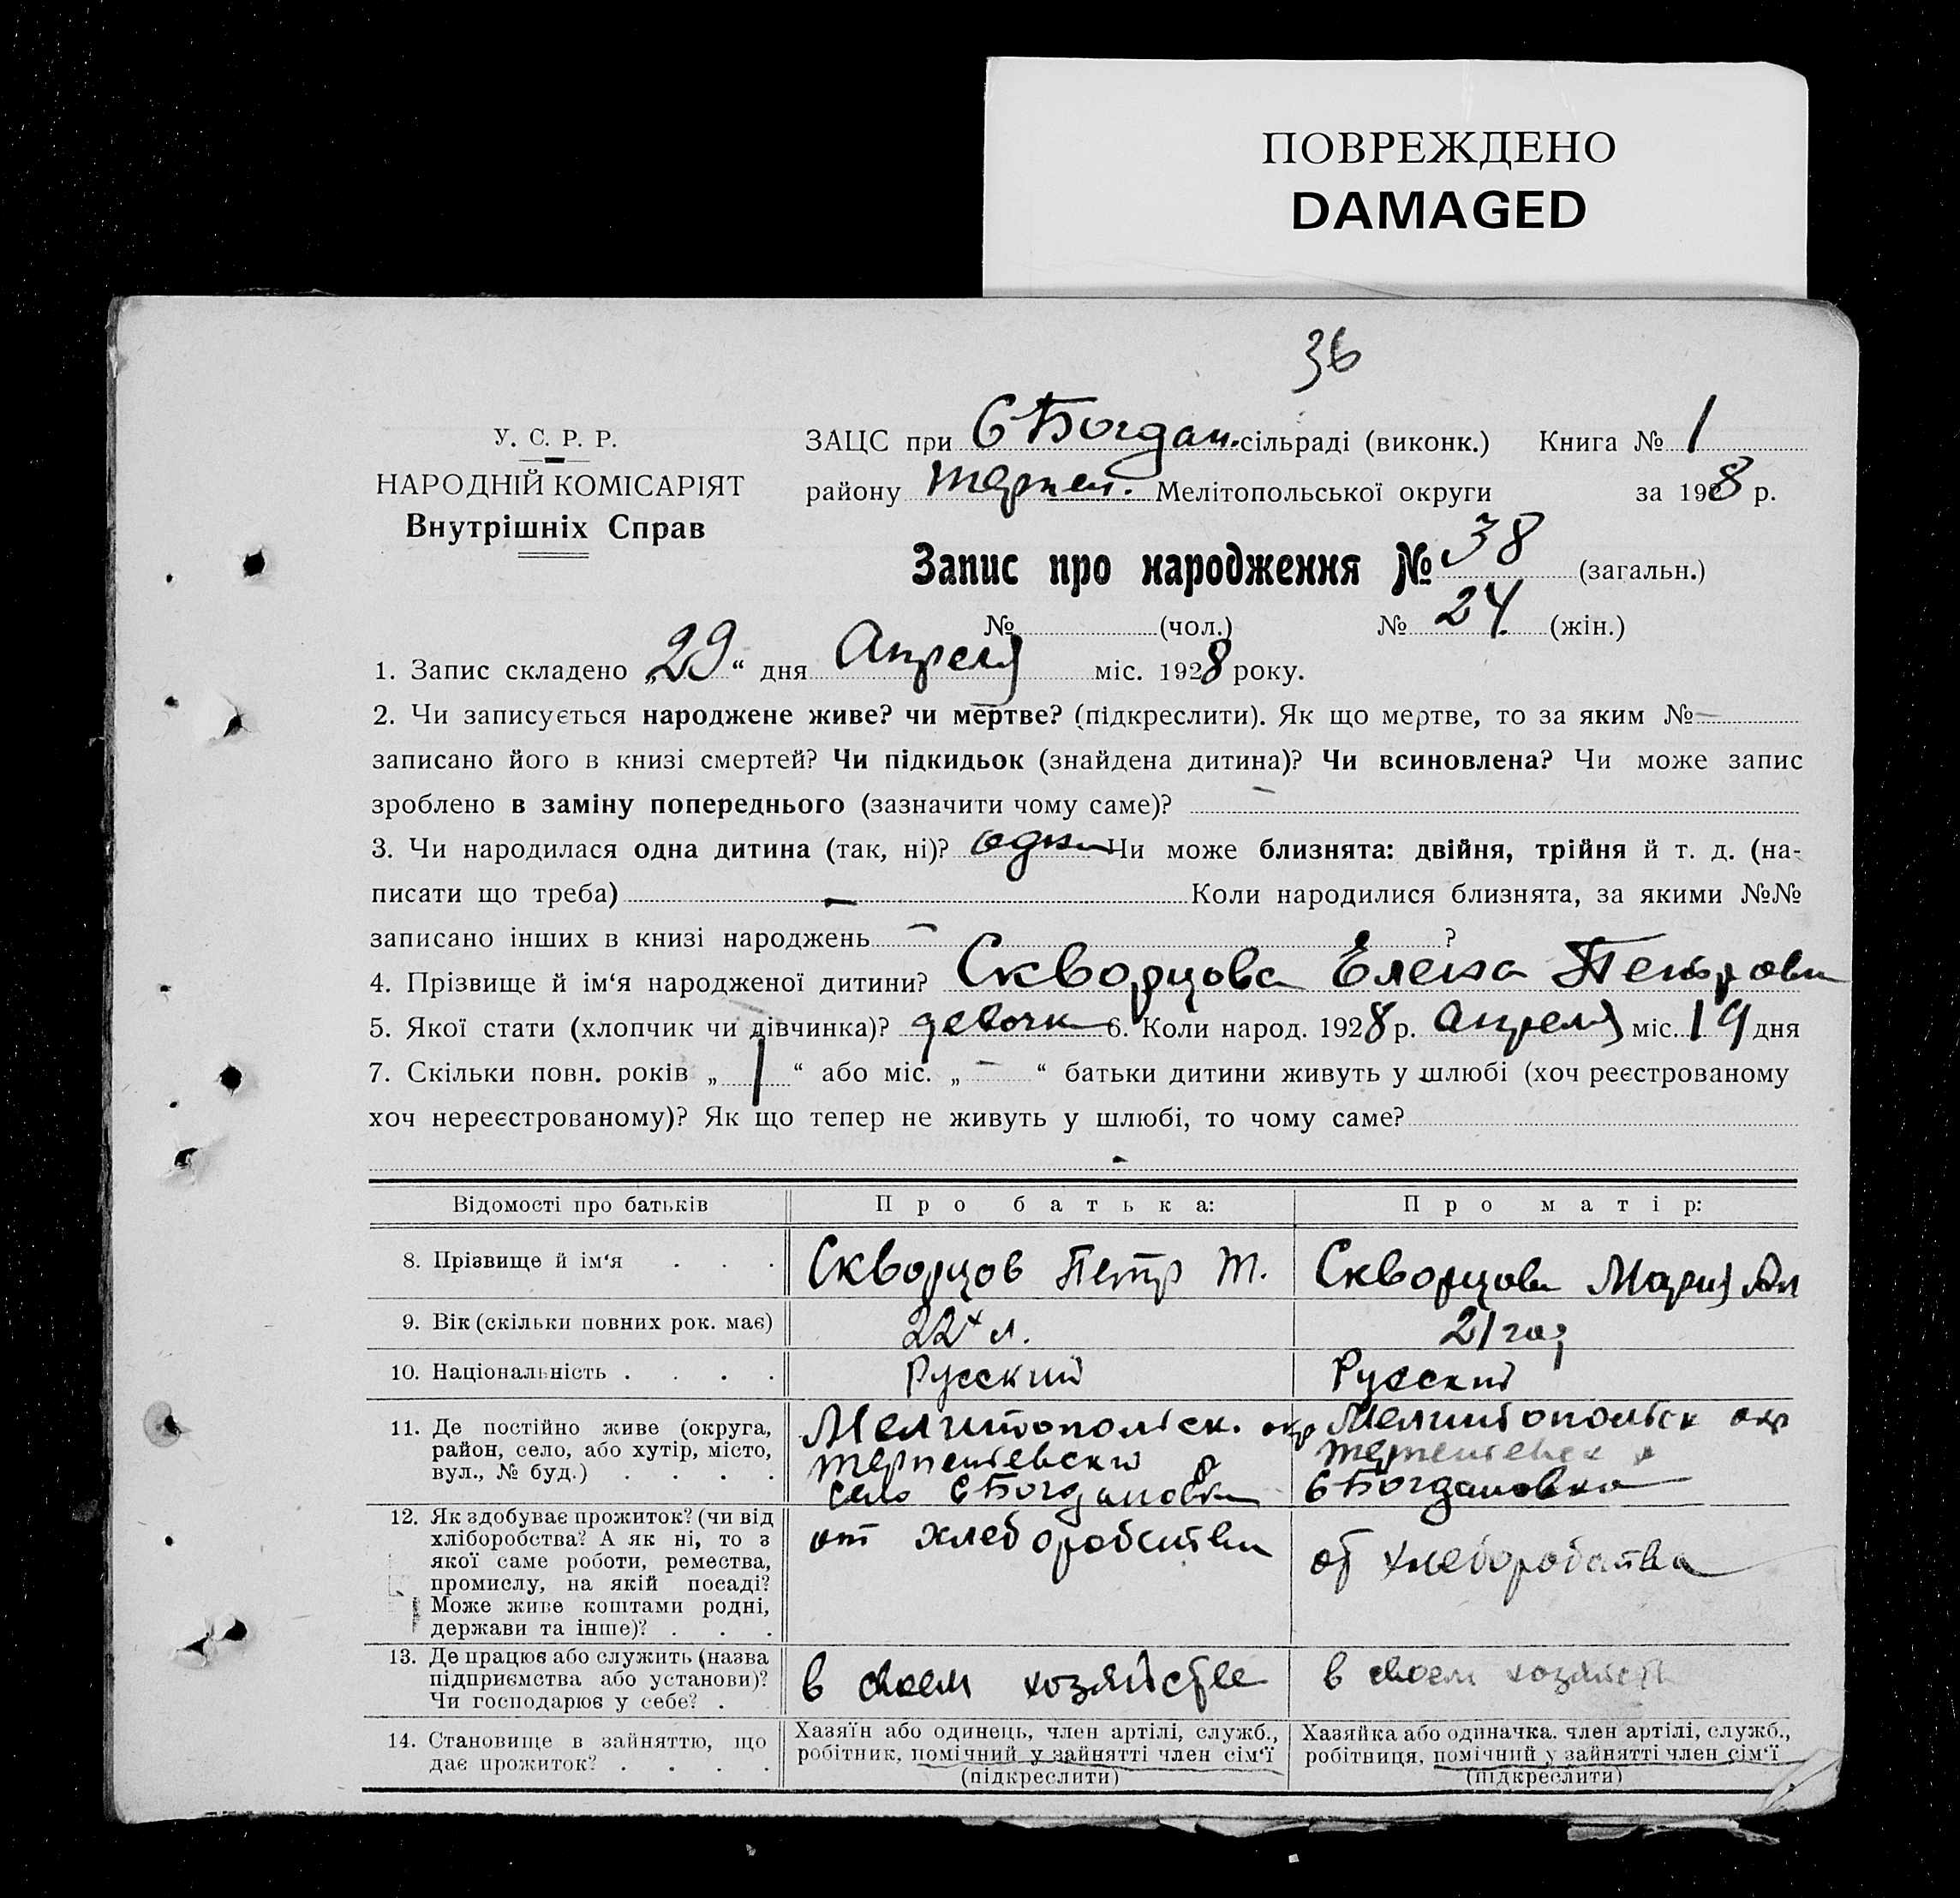 ПОВРЕЖДЕНО
DAMAGED
36
У. С. Р. Р.
НАРОДНІЙ КОМІСАРІЯТ
Внутрішніх Справ
ЗАЦС при С Богдан. сільраді (виконк.) Книга № 1
району Терпен. Мелітопольської округи за 1928 р.
Запис про народження № 38 (загальн.)
№ (чол.) № 24 (жін.)
1. Запис складено „29“ дня Апреля міс. 1928 року.
2. Чи записується народжене живе? чи мертве? (підкреслити). Як що мертве, то за яким № —
записано його в книзі смертей? Чи підкидьок (знайдена дитина)? Чи всиновлена? Чи може запис
зроблено в заміну попереднього (зазначити чому саме)? —
3. Чи народилася одна дитина (так, ні)? одна Чи може близнята: двійня, трійня й т. д. (на-
писати що треба) — Коли народилися близнята, за якими №№
записано інших в книзі народжень — ?
4. Прізвище й ім‘я народженої дитини? Скворцова Елена Петровн
5. Якої стати (хлопчик чи дівчинка)? девочка 6. Коли народ. 1928 р. апреля міс. 19 дня
7. Скільки повн. років „1“ або міс. „—“ батьки дитини живуть у шлюбі (хоч реєстрованому
хоч нереєстрованому)? Як що тепер не живуть у шлюбі, то чому саме?
Відомості про батьків Про батька: Про матір:
8. Прізвище й ім‘я . . . Скворцов Петр Т. Скворцова Мария
9. Вік (скільки повних рок. має) 22 л. 21 год
10. Національність . . . . Русский Русский
11. Де постійно живе (округа, район, село, або хутір, місто, вул., № буд.) . . . .
Мелитопольск. окр
Терпеневский р
село С Богдановка
Мелитопольск окр
Терпеневск р
С Богдановка
12. Як здобуває прожиток? (чи від хліборобства? А як ні, то з якої саме роботи, ремества, промислу, на якій посаді? Може живе коштами родні, держави та інше)? . . .
от хлеборобства
от хлеборобства
13. Де працює або служить (назва підприємства або установи)? Чи господарює у себе? .
в своем хозяйстве
в своем хозяйств
14. Становище в зайняттю, що дає прожиток? . . . .
Хазяїн або одинець, член артілі, служб.,
робітник, помічний у зайнятті член сім‘ї
(підкреслити)
Хазяйка або одиначка. член артілі, служб.,
робітниця, помічний у зайнятті член сім‘ї
(підкреслити)